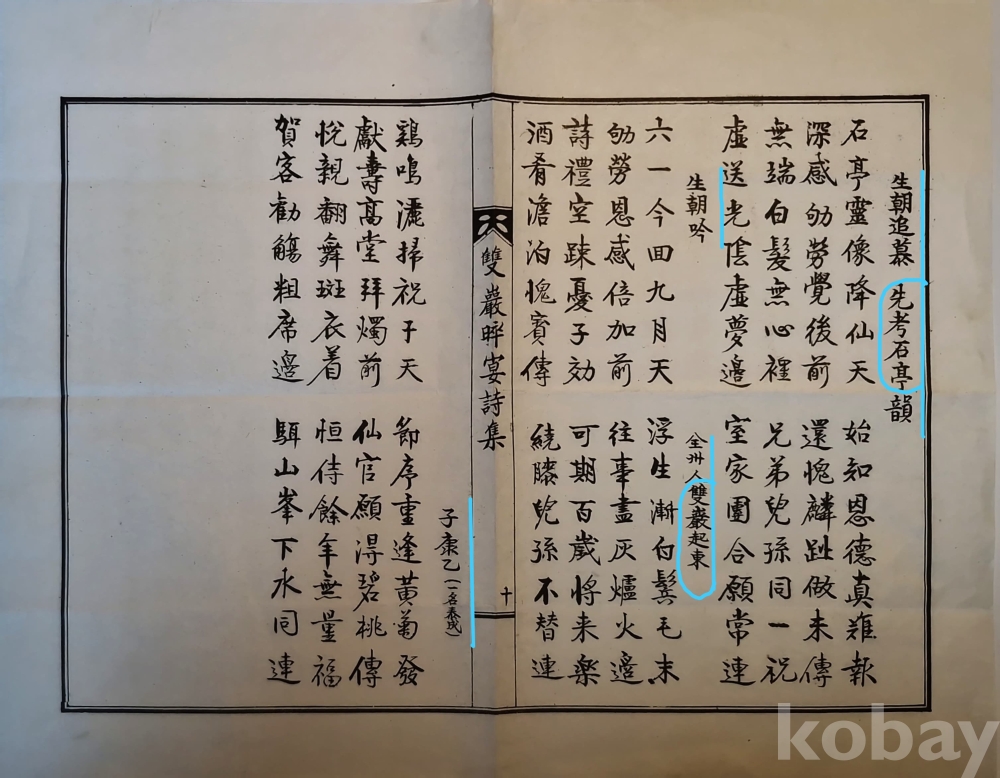 生朝追慕 先考石亭韻
石亭靈像降仙天 始知恩德真難報
深感劬勞覺後前 還愧麟趾做未傳
無端白髮無心裡 兄弟兒孫同一祝
虛送光陰虛夢邊 室家團合願常連
生朝吟
全州人雙巖起東
六一今回九月天 浮生漸白鬓毛末
劬勞恩感倍加前 往事盡灰爐火邊
詩禮室踈憂子効 可期百歲将来楽
酒肴澹泊愧賓傳 繞膝兒孫不替連
雙巖晬宴詩集
十
子康乙(一名泰成)
鷄鳴灑掃祝于天 節序重逢黃菊發
獻壽高堂拜燭前 仙官願淂碧桃傳
悅親翻舞斑衣着 恒侍餘年無量福
賀客勸觴粗席邊 駬山峯下水同連
kobay